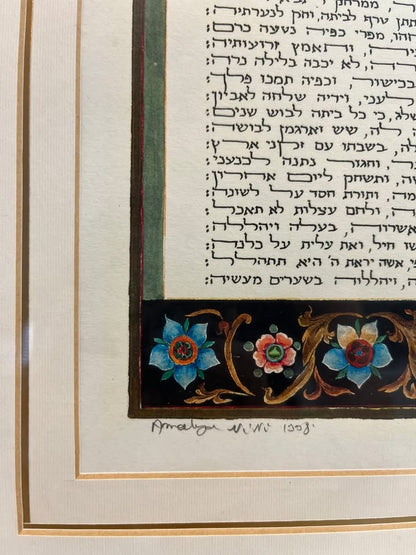 תתן טרף לביתה, וחק לנערתיה:
מפרי כפיה נטעה כרם:
ותאמץ זרועותיה:
לא יכבה בלילה נרה:
בכישור, וכפיה תמכו פלך:
לעני, וידיה שלחה לאביון:
שלג, כי כל ביתה לבוש שנים:
לה, שש וארגמן לבושה:
בשבתו עם זקני ארץ:
וחגור נתנה לכנעני:
ותשחק ליום אחרון:
ותורת חסד על לשונה:
ולחם עצלות לא תאכל:
אשרוה, בעלה ויהללה:
חיל, ואת עלית על כלנה:
אשה יראת ה' היא, תתהלל:
ויהללוה בשערים מעשיה: